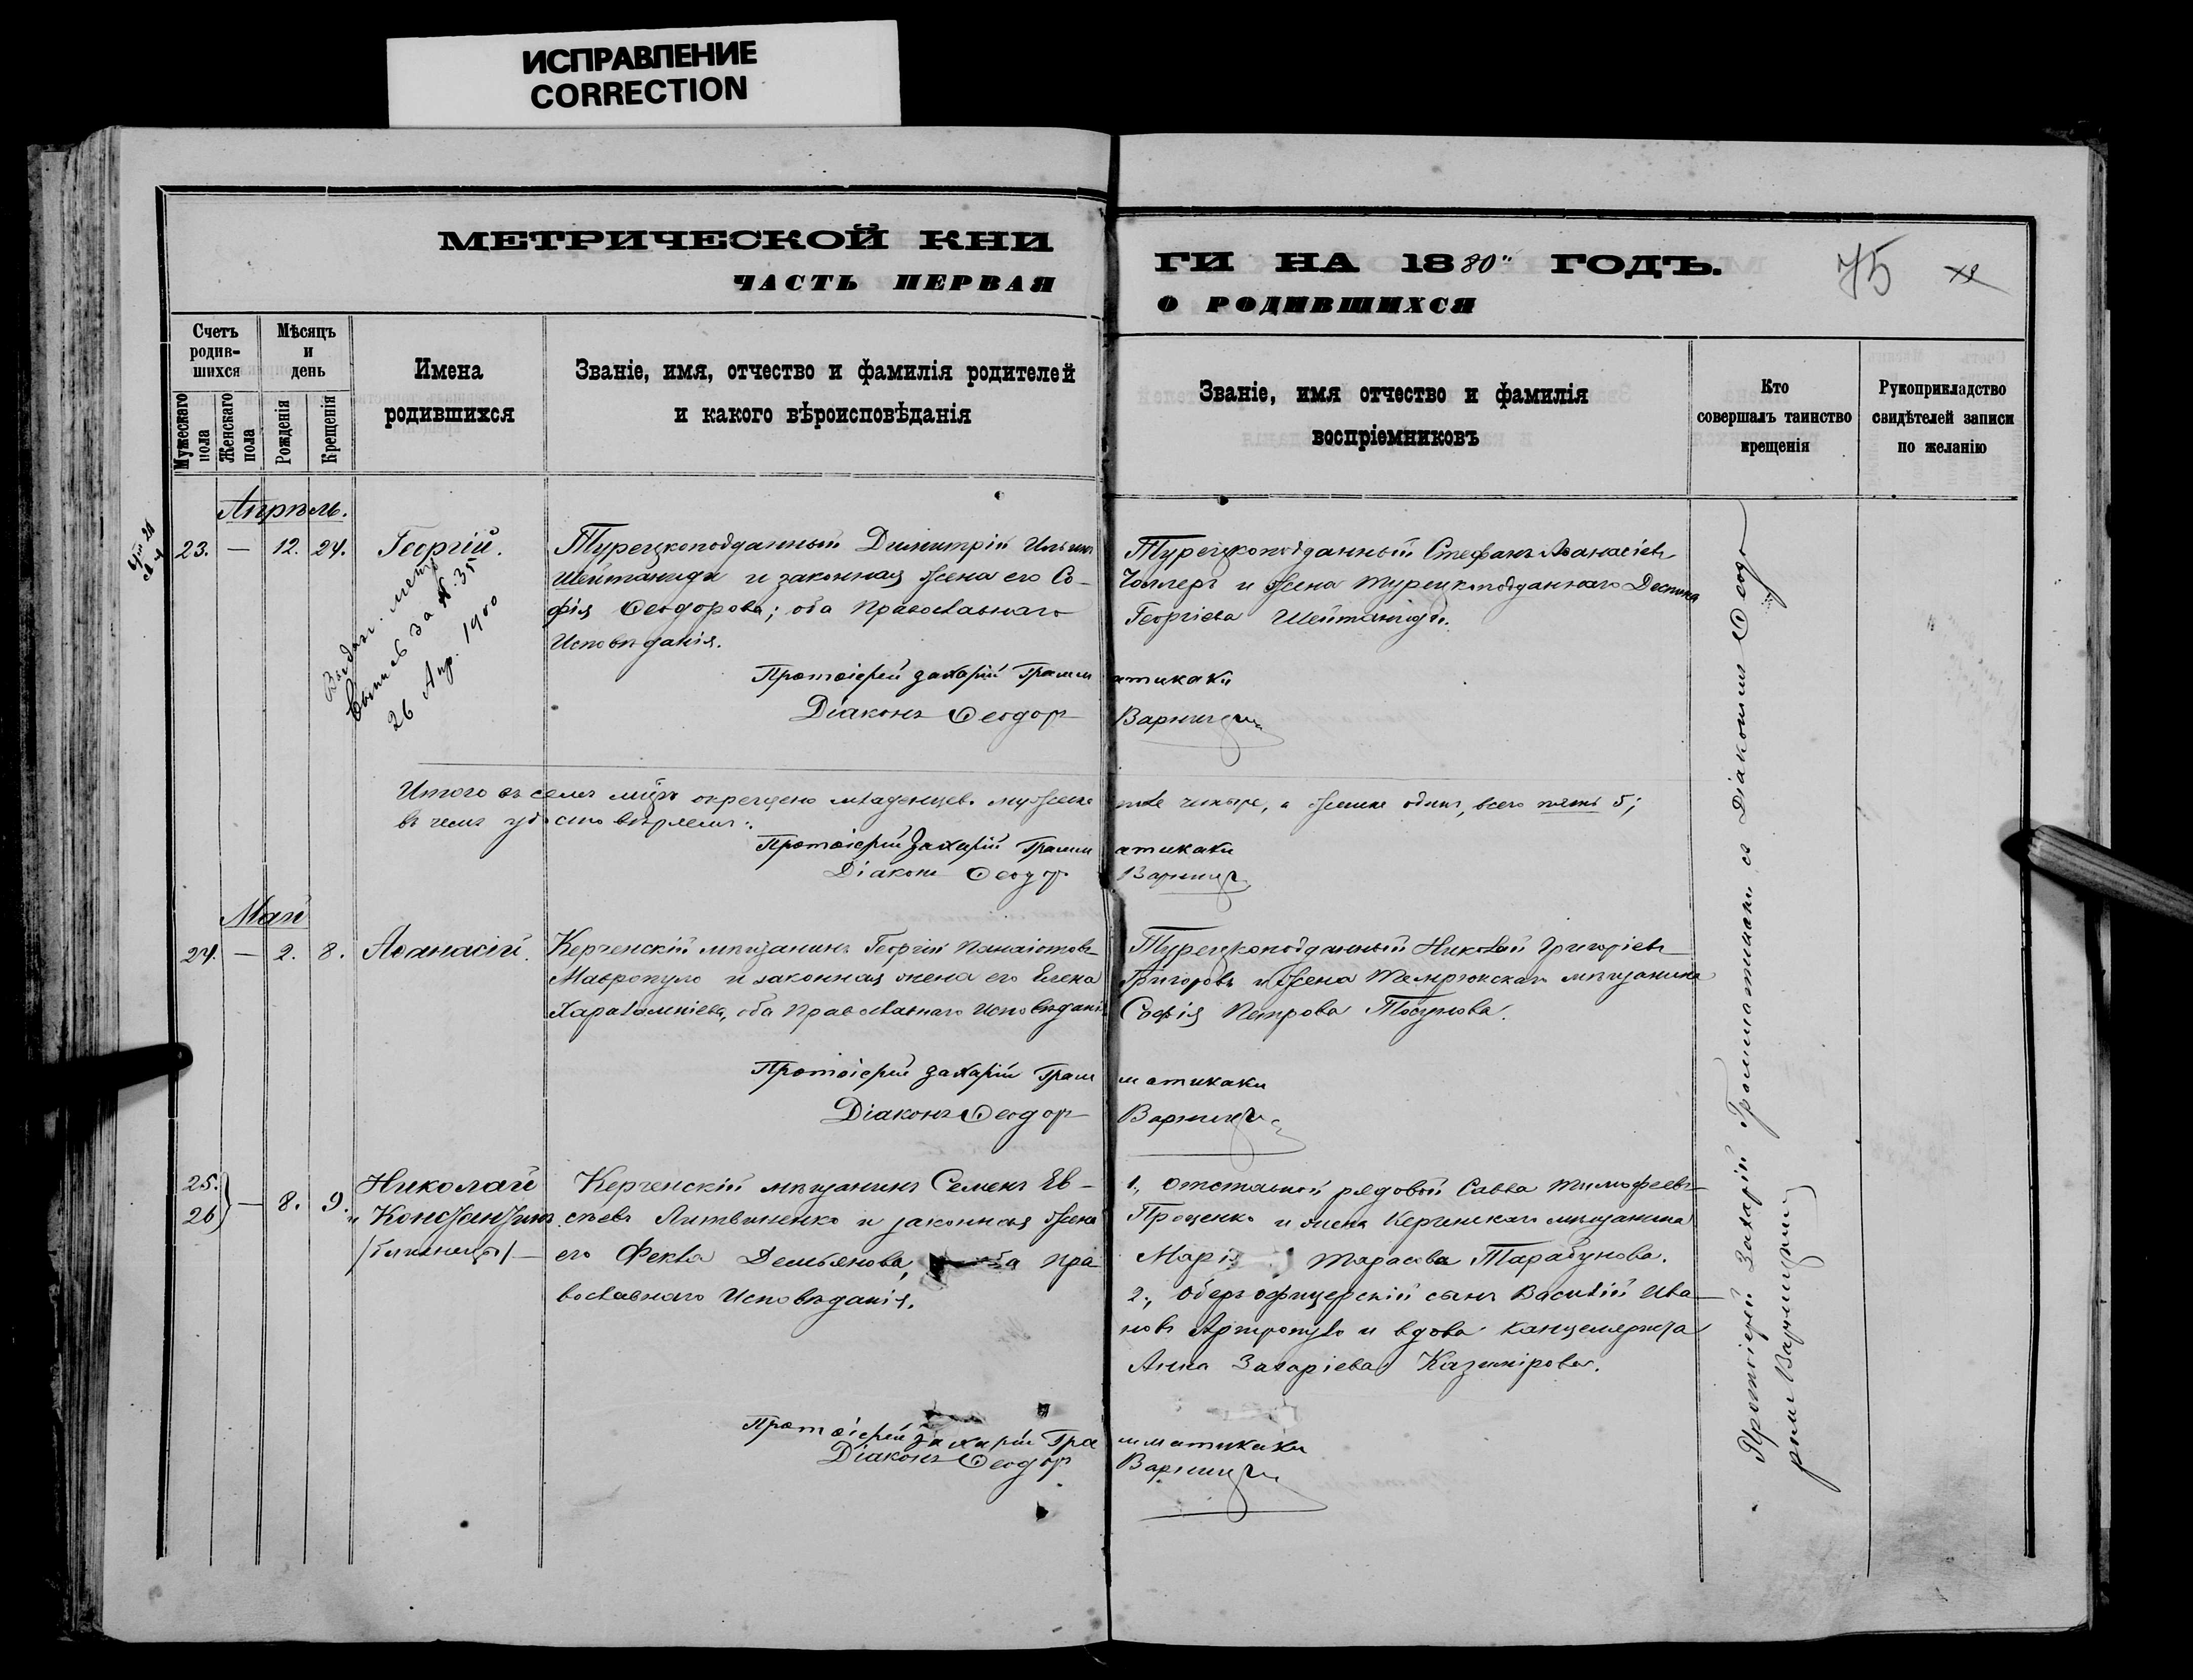 ИСПРАВЛЕНИЕ
CORRECTION
МЕТРИЧЕСКОЙ КНИ
ГИ НА 1880" ГОДЪ.
75
ЧАСТЬ ПЕРВАЯ
О РОДИВШИХСЯ
Счетъ родив- шихся
Мѣсяцъ и день
Мужескаго пола
Женскаго пола
Рожденія
Крещенія
Имена
родившихся
Званіе, имя, отчество и фамилія родителей
и какого вѣроисповѣданія
Званіе, имя отчество и фамилія
воспріемниковъ
Кто
совершалъ таинство
крещенія
Рукоприкладство
свидѣтелей записи
по желанію
Апрѣль.
23. — 12. 24. Георгій.
Турецкоподданный Димитрій Ильинъ
Шейтаниди и законная жена его Со-
фія Ѳеодорова; оба Православнаго
Исповѣданія.
Турецкоподданный Стефанъ Аѳанасіевъ
и жена турецкоподданнаго Деспина
Георгіева Шейтаниди.
за № 35
26 Апр. 1900
Протоіерей Захарій Грамматикаки
Діаконъ Ѳеодоръ
Итого въ семъ м-цѣ окрещено младенцевъ мужеска пола четыре, а женска одинъ, всего пять 5;
въ чемъ удостовѣряемъ:
Протоіерей Захарій Грамматикаки
Діаконъ Ѳеодоръ
Май
24. — 2. 8. Аѳанасій.
Керченскій мѣщанинъ Георгій Панаіотовъ
Мавропуло и законная жена его Елена
Харалампіева, оба Православнаго Исповѣданія
Турецкоподданный Николай Григоріевъ
Григоровъ и жена Темрюкскаго мѣщанина
Софія Петрова
Протоіерей Захарій Грамматикаки
Діаконъ Ѳеодоръ
25.
26 — 8. 9.
Николай
и Константинъ
/близнецы/
Керченскій мѣщанинъ Семенъ Ев-
сѣевъ Литвиненко и законная жена
его Фекла Демьянова, оба Пра
вославнаго Исповѣданія.
1., отставной рядовой Савва Тимофеевъ
Проценко и жена Керченскаго мѣщанина
Марія Тарасова Тарабунова.
2., Оберъ офицерскій сынъ Василій Ива
новъ Артропуло и вдова канцеляриста
Анна Захаріева Казимірова.
Протоіерей Захарій Грамматикаки
Діаконъ Ѳеодоръ
Протоіерей Захарій Грамматикаки съ Діакономъ Ѳеодо